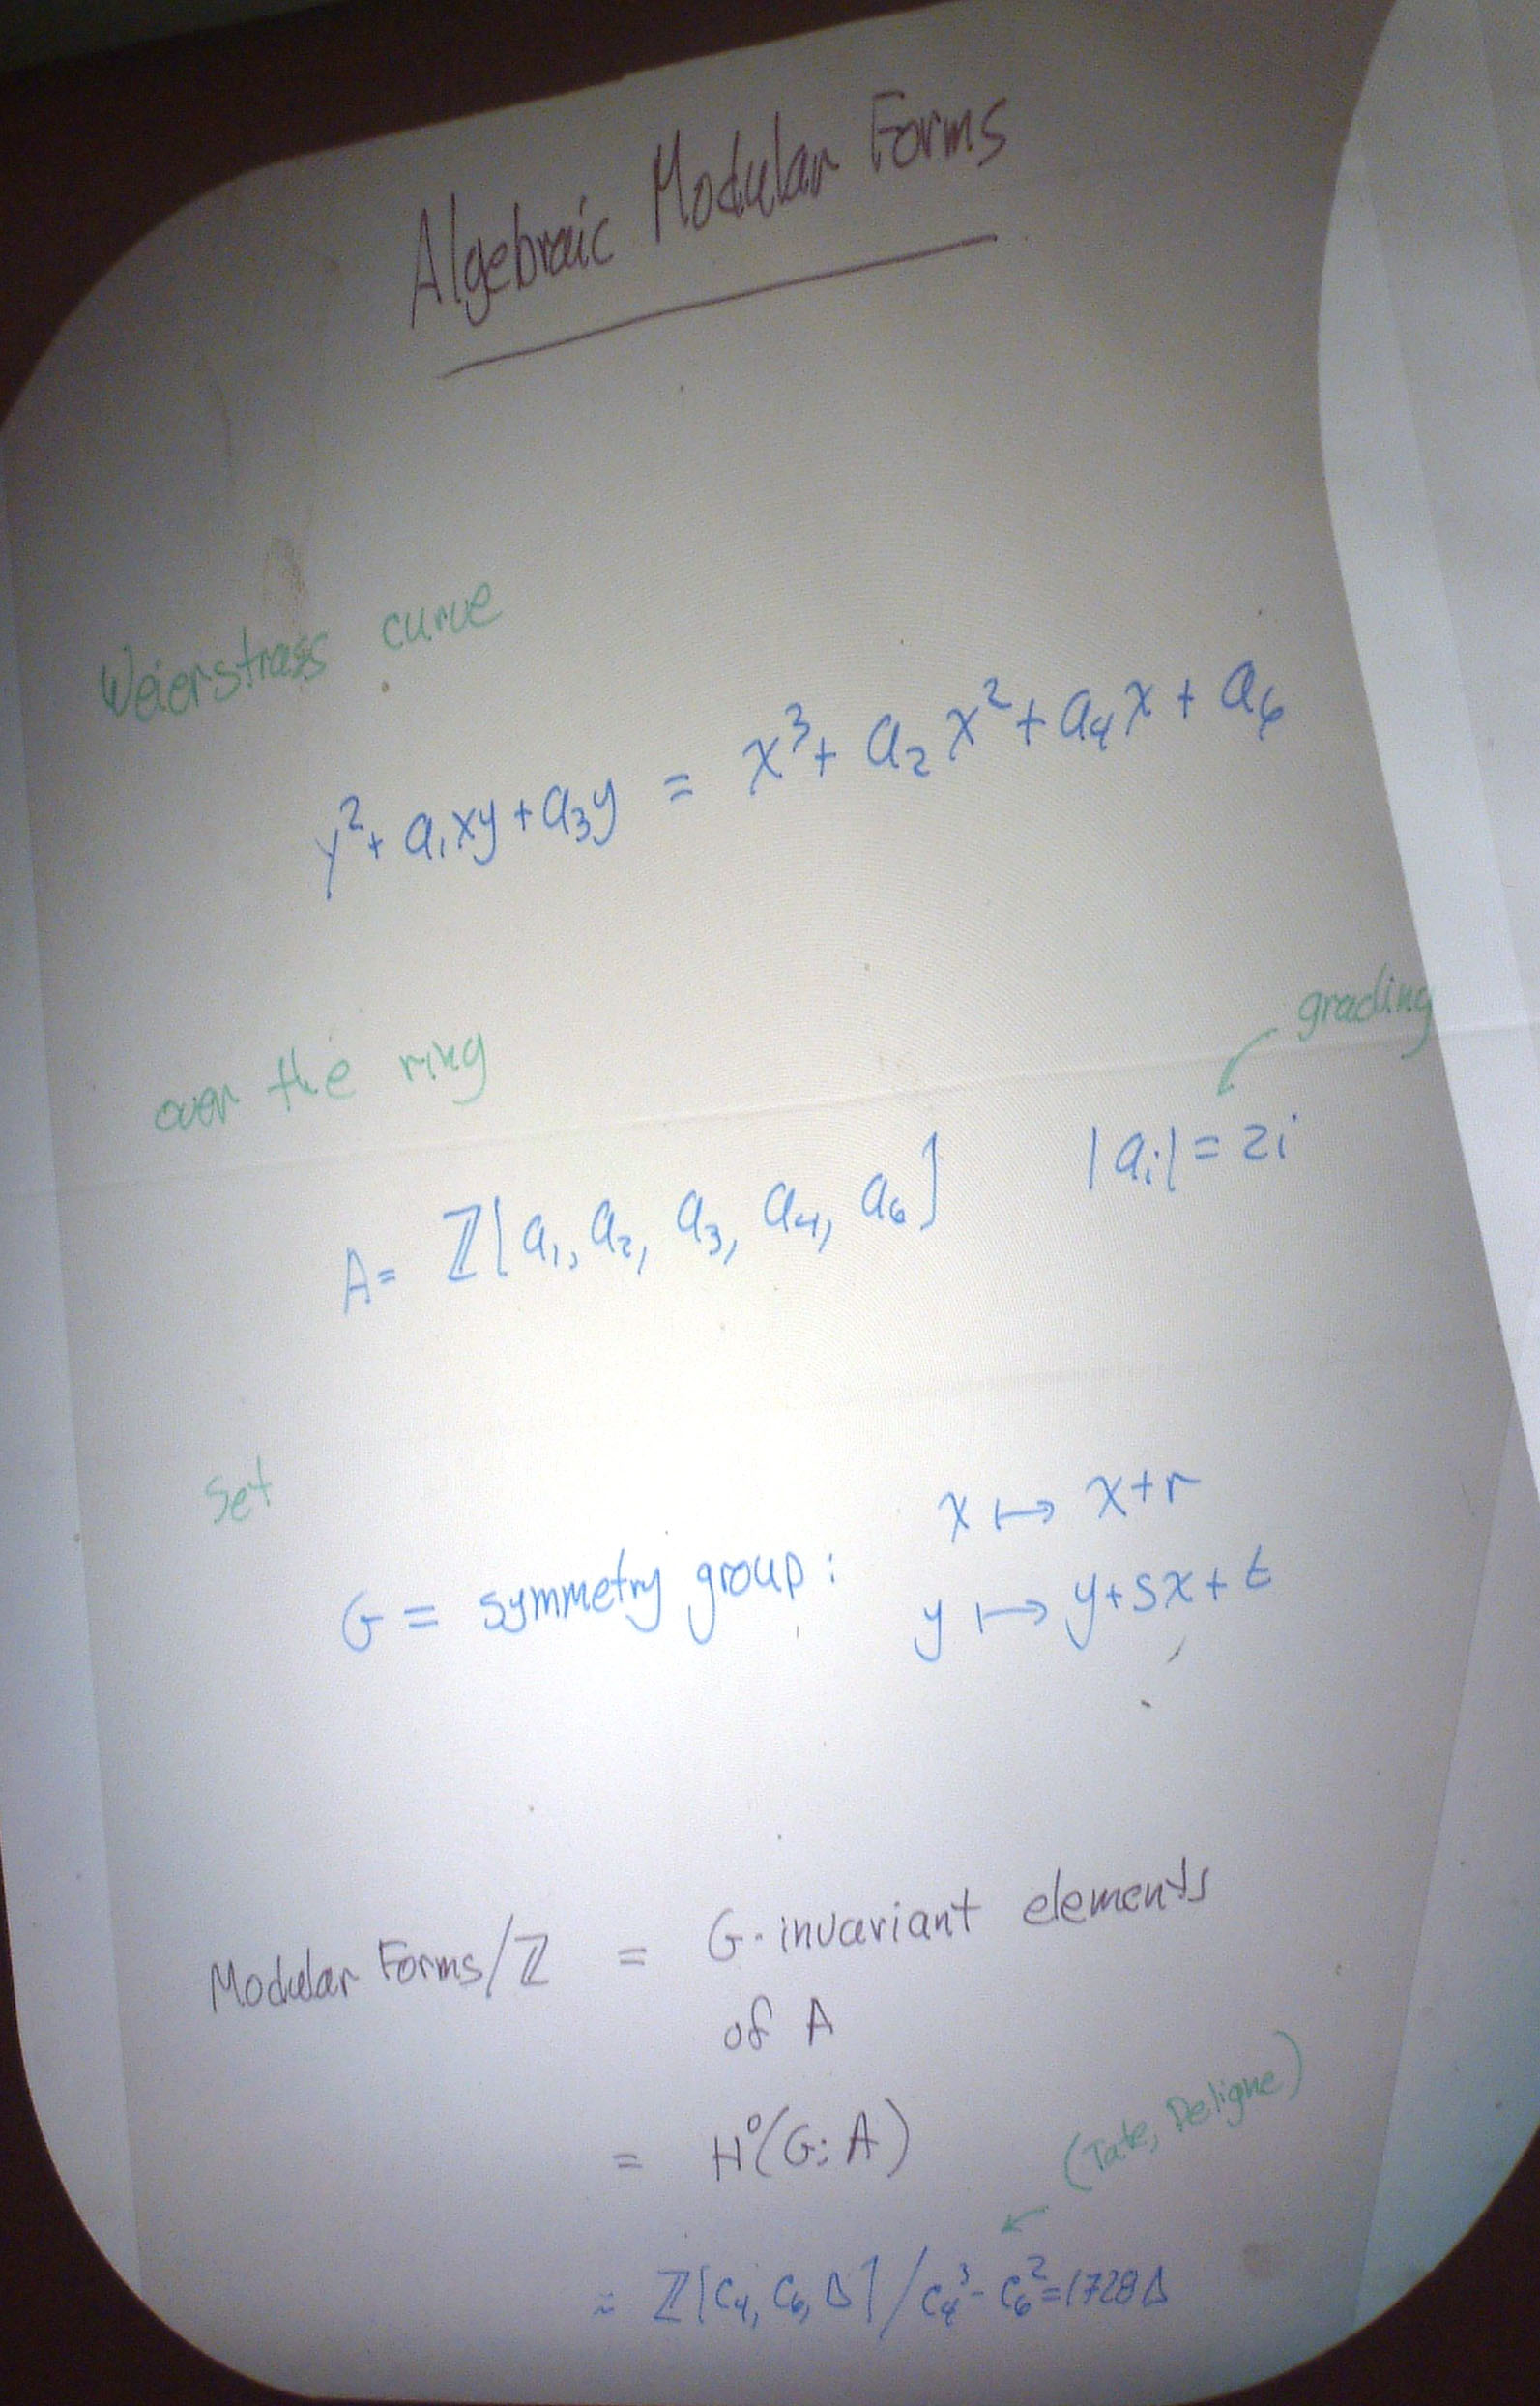 Algebraic Modular Forms
Weierstrass curve
y² + a₁xy + a₃y = x³ + a₂x² + a₄x + a₆
over the ring
grading
A = ℤ[a₁, a₂, a₃, a₄, a₆] |aᵢ| = 2i
Set
G = symmetry group: x ↦ x+r
y ↦ y+sx+t
Modular Forms/ℤ = G-invariant elements
of A
= H⁰(G; A)
(Tate, Deligne)
≈ ℤ[c₄, c₆, Δ]/c₄³ - c₆² = 1728Δ